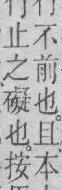 不前也。且本
止之礙也。按